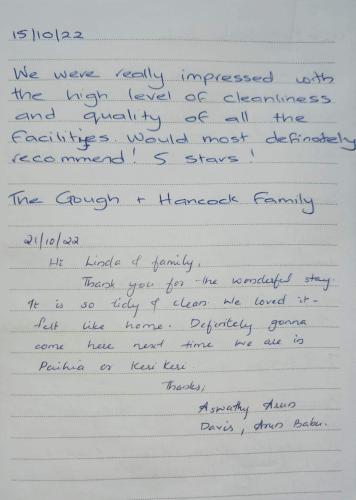 15/10/22
We were really impressed with
the high level of cleanliness
and quality of all the
facilities. Would most definately
recommend! 5 stars!
The Gough + Hancock Family
21/10/22
Hi Linda & family,
Thank you for the wonderful stay.
It is so tidy & clean. We loved it -
felt like home. Definitely gonna
come here next time we are in
Paihia or Keri Keri.
Thanks,
Aswathy Arun
Davis, Arun Babu.